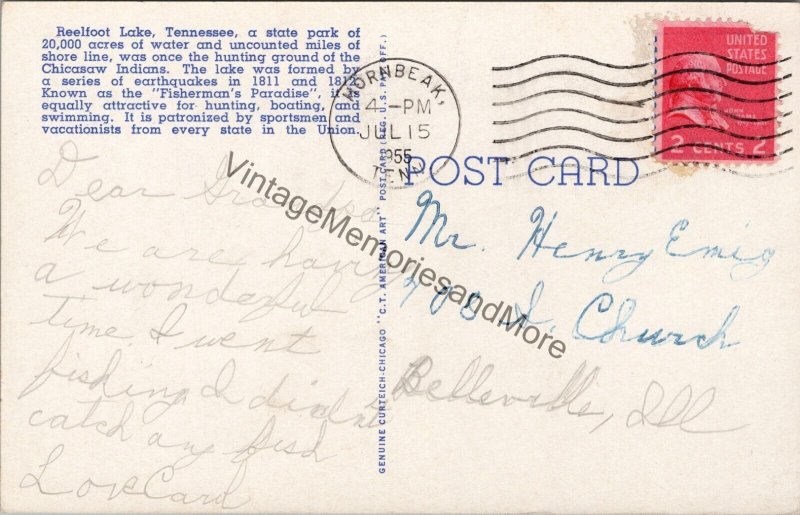 Reelfoot Lake, Tennessee, a state park of
20,000 acres of water and uncounted miles of
shore line, was once the hunting ground of the
Chicasaw Indians. The lake was formed by
a series of earthquakes in 1811 and 1812.
Known as the "Fisherman's Paradise", it is
equally attractive for hunting, boating, and
swimming. It is patronized by sportsmen and
vacationists from every state in the Union.
HORNBEAK,
4-PM
JUL 15
1955
TENN
UNITED
STATES
POSTAGE
JOHN ADAMS
2 CENTS 2
POST CARD
GENUINE CURTEICH-CHICAGO "C.T. AMERICAN ART" POST CARD (REG. U.S. PAT. OFF.)
Dear Grandpa
We are having
a wonderful
time. I went
fishing I didn't
catch any fish
Love Carol
Mr. Henry Emig
Church
Belleville, Ill
VintageMemoriesandMore